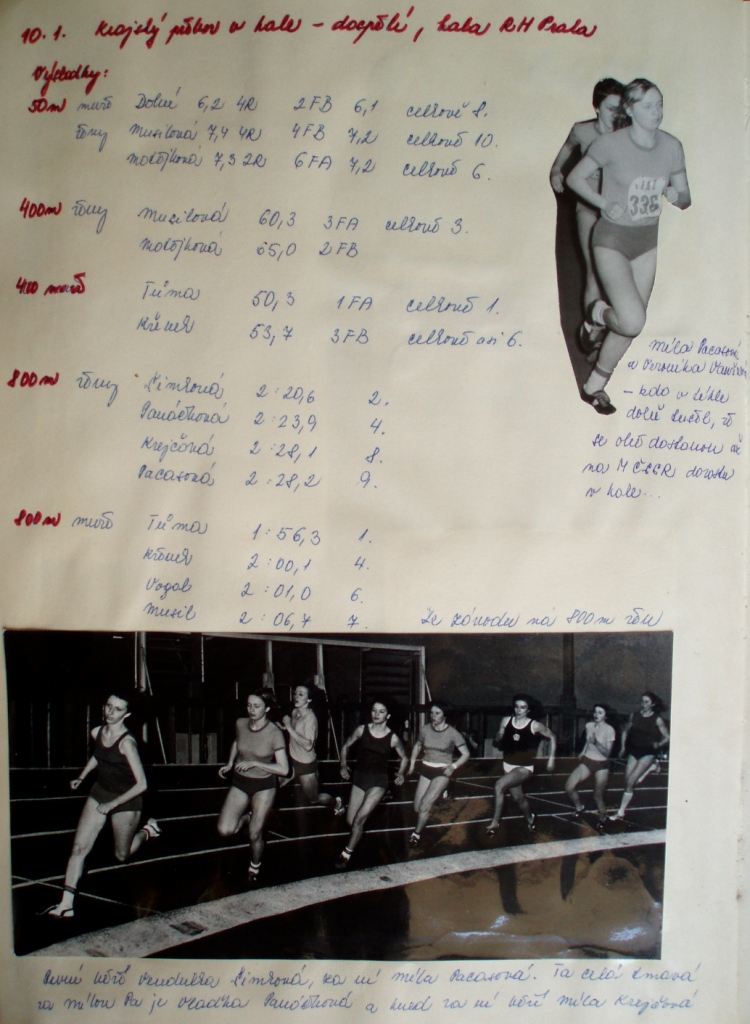 10.1. Krajský přebor v hale - dospělí, hala RH Praha
Výsledky:
50m muži Dolní 6,2 4R 2FB 6,1 celkově 8.
ženy Musilová 7,4 4R 4FB 7,2 celkově 10.
Matějková 7,3 2R 6FA 7,2 celkově 6.
400m ženy Musilová 60,3 3FA celkově 3.
Matějková 65,0 2FB
400 muži Tůma 50,3 1FA celkově 1.
Křenek 53,7 3FB celkově asi 6.
800m ženy Šimková 2:20,6 2.
Panáčková 2:23,9 4.
Krejčová 2:28,1 8.
Pacasová 2:28,2 9.
800m muži Tůma 1:56,3 1.
Křenek 2:00,1 4.
2:01,0 6.
Musil 2:06,7 7.
336
Míla Pacasová
a Veronika
- kdo v těhle
době tušil, že
se obě dostanou až
na MČSSR dorostu
v hale...
Ze závodu na 800m žen
První běží Vendulka Šimková, za ní Míla Pacasová. Ta celá tmavá
za Mílou Pa je Vlaďka Panáčková a hned za ní běží Míla Krejčová